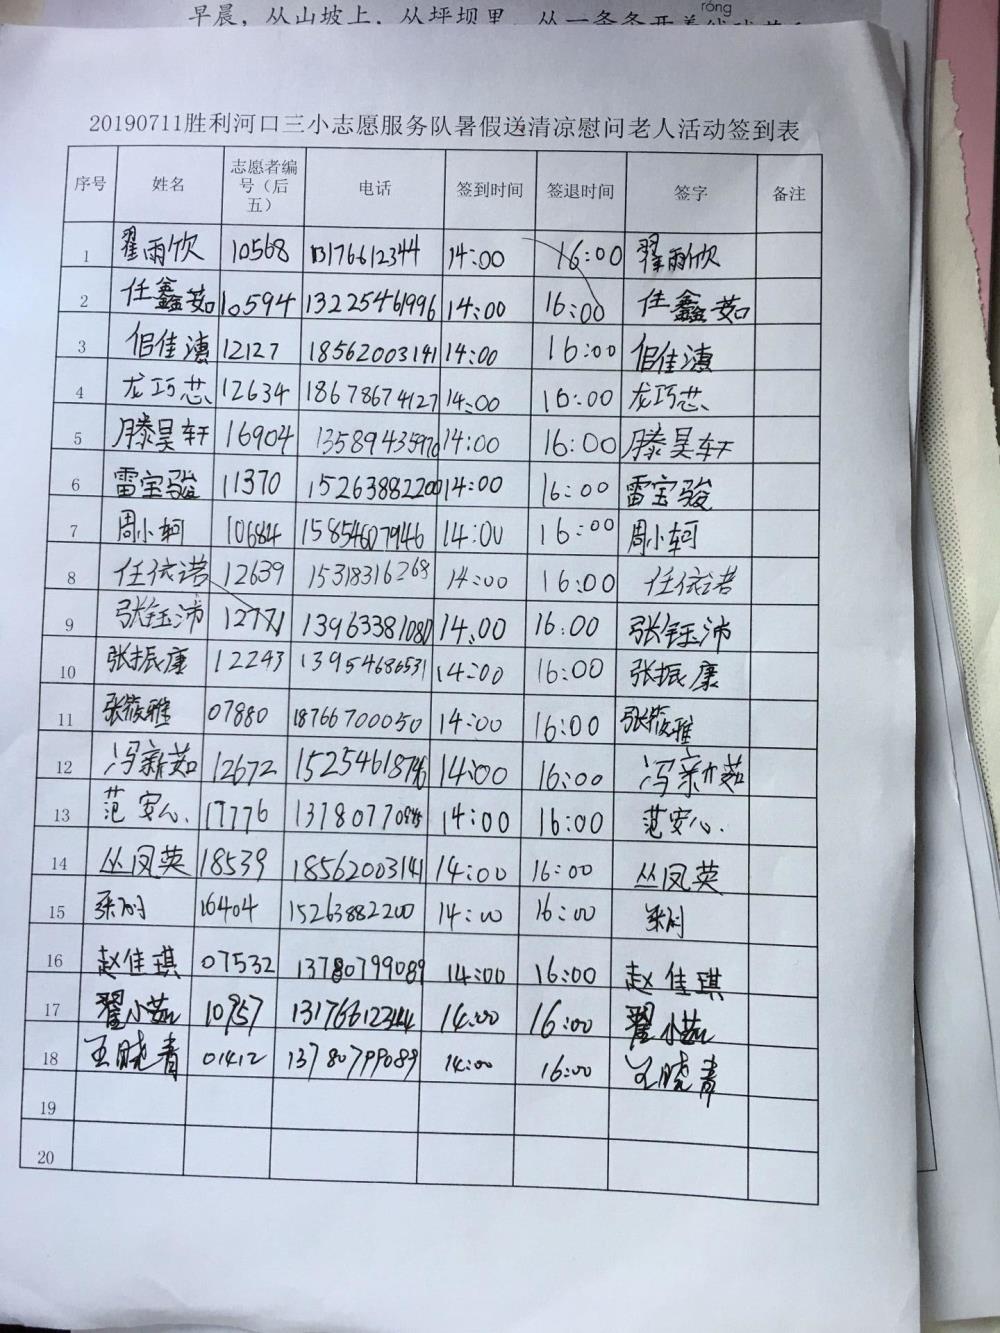 早晨，从山坡上，从坪坝里，从一条条开着绒球花和
róng
20190711胜利河口三小志愿服务队暑假送清凉慰问老人活动签到表
序号 姓名 志愿者编号（后五） 电话 签到时间 签退时间 签字 备注
1 翟雨欣 10568 13176612344 14:00 16:00 翟雨欣
2 任鑫茹 10594 13225461996 14:00 16:00 任鑫茹
3 佀佳潓 12127 18562003141 14:00 16:00 佀佳潓
4 龙巧芯 12634 18678674127 14:00 16:00 龙巧芯
5 滕昊轩 16904 13589435970 14:00 16:00 滕昊轩
6 雷宝骏 11370 15263882200 14:00 16:00 雷宝骏
7 周小轲 10684 15854607946 14:00 16:00 周小轲
8 任依诺 12639 15318316268 14:00 16:00 任依诺
9 张钰沛 12771 13963381080 14:00 16:00 张钰沛
10 张振康 12243 13954686531 14:00 16:00 张振康
11 张筱雅 07880 18766700050 14:00 16:00 张筱雅
12 冯新茹 12672 15254618746 14:00 16:00 冯新茹
13 范安心 17776 14:00 16:00 范安心
14 丛凤英 18539 18562003141 14:00 16:00 丛凤英
15 16404 15263882200 14:00 16:00
16 赵佳琪 07532 13780799089 14:00 16:00 赵佳琪
17 翟小茹 10957 13176612344 14:00 16:00 翟小茹
18 王晓青 01412 13780799089 14:00 16:00 王晓青
19
20